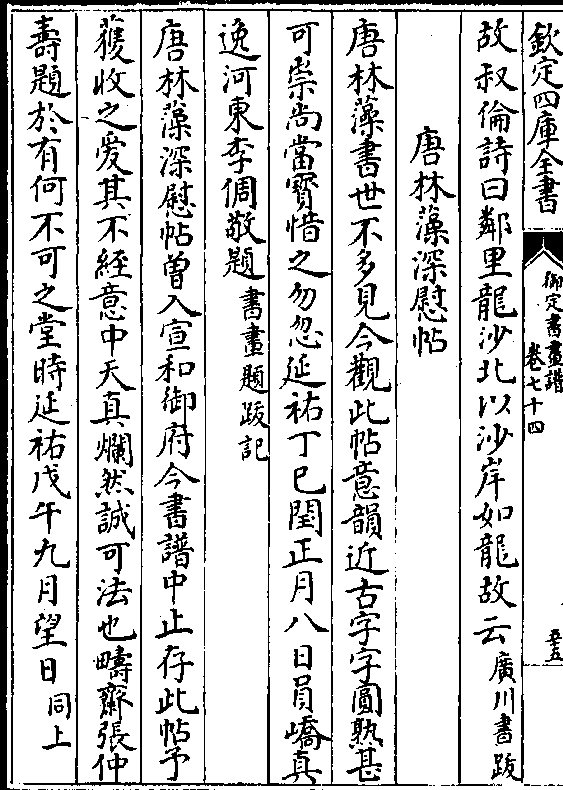 欽定四庫全書
御定書畫譜
卷七十四
五五
故叔倫詩曰鄰里龍沙北以沙岸如龍故云廣川書跋
唐林藻深慰帖
唐林藻書世不多見今觀此帖意韻近古字字圓熟甚
可崇尚當寳惜之勿忽延祐丁巳閏正月八日員嶠真
逸河東李倜敬題書畫題跋記
唐林藻深慰帖曽入宣和御府今書譜中止存此帖予
獲收之愛其不經意中天真爛然誠可法也疇齋張仲
壽題於有何不可之堂時延祐戊午九月望日同上